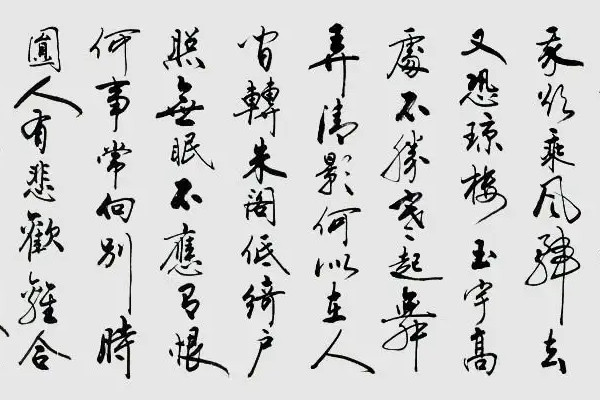 我欲乘風歸去
又恐琼樓玉宇高
處不勝寒起舞
弄清影何似在人
間轉朱閣低綺户
照無眠不應有恨
何事常向别時
圓人有悲歡離合